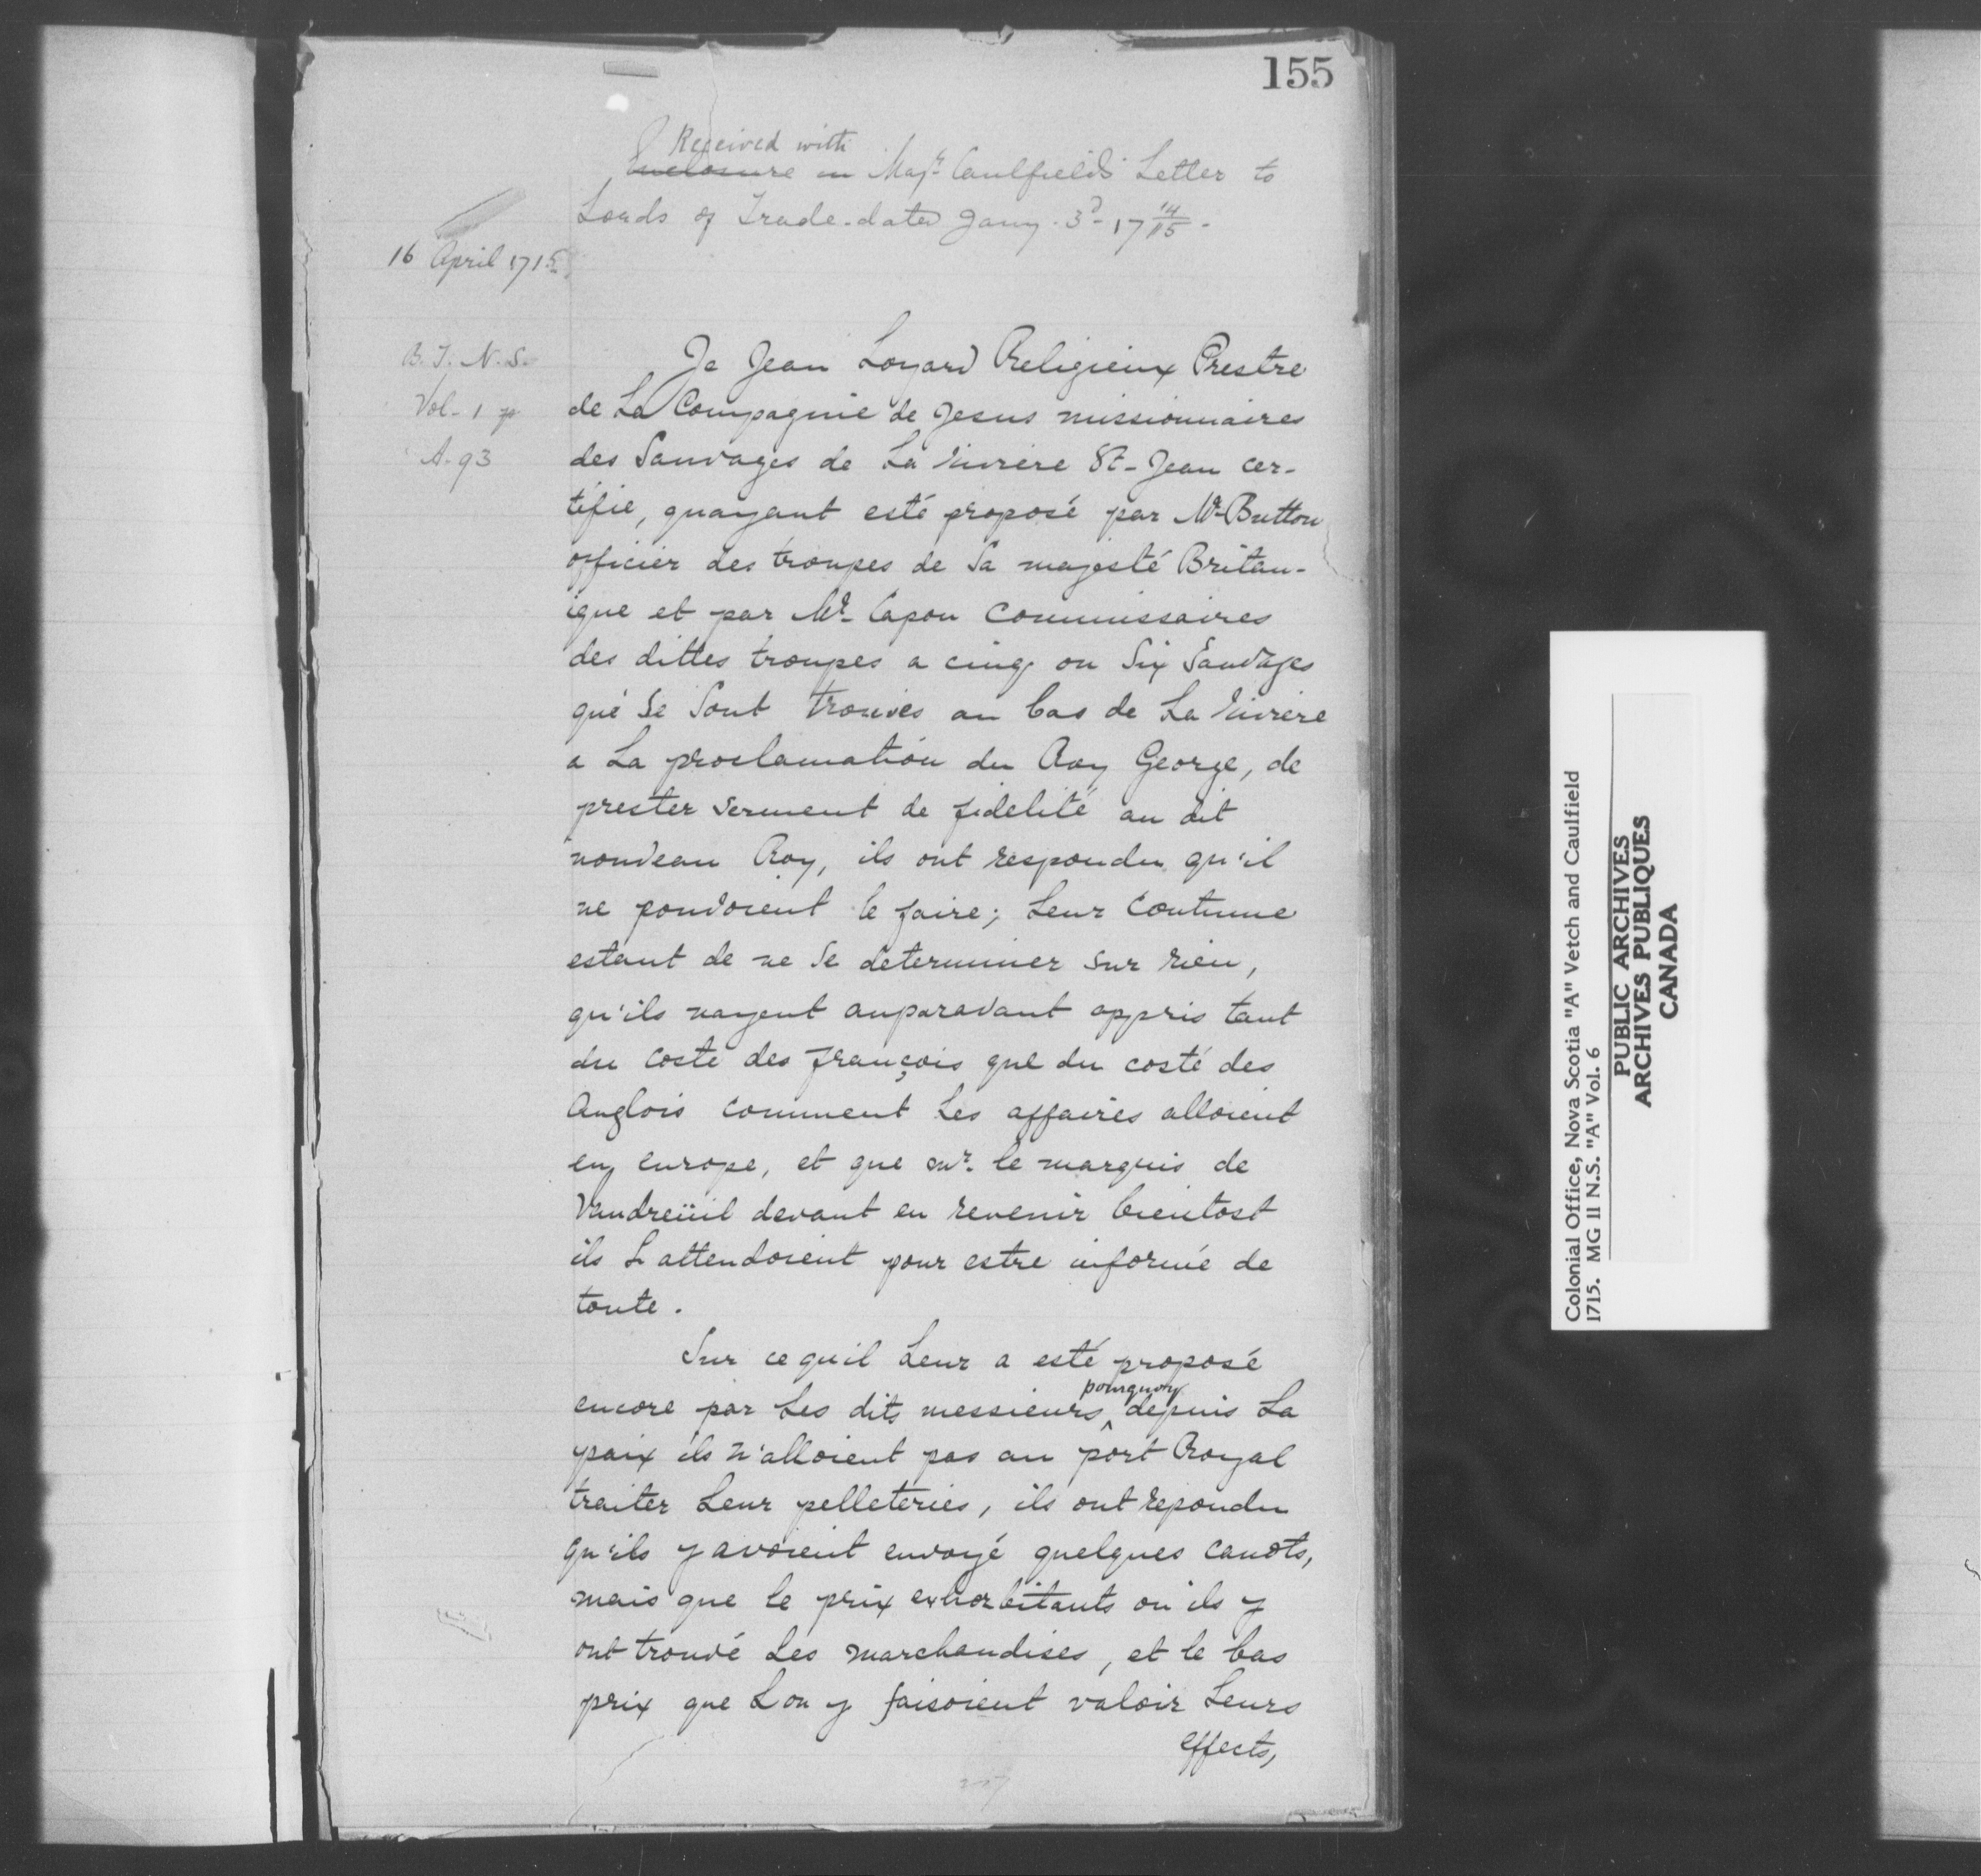 155
Received with
Enclosure in Majr. Caulfield's Letter to
Lords of Trade dated Jany. 3d- 17 14/15 -
16 April 1715.
B. T. N. S.
Vol- 1 p
A. 93
Je Jean Loyard Religieux Prestre
de La Compagnie de Jesus missionnaires
des Sauvages de La Rivière St- Jean cer-
tifie, quayant esté proposé par Mr Button
officier des troupes de Sa majesté Britan-
ique et par Mr. Capon Commissaires
des dittes troupes a cinq ou Six Sauvages
qui Se Sont trouvés au bas de La Rivière
a La proclamation du Roy George, de
prester Serment de fidelité au dit
nouveau Roy, ils ont respondu qu'il
ne pouvoient le faire; Leur Coutume
estant de ne Se determiner Sur rien,
qu'ils nayent auparavant appris tant
du Costé des françois que du costé des
Anglois comment Les affaires alloient
en europe, et que mr. le marquis de
Vaudreüil devant en revenir bientost
ils L attendoient pour estre informé de
toute.
Sur ce quil Leur a esté proposé
encore par Les dits messieurs ^ pourquoy depuis La
paix ils n'alloient pas au port Royal
traiter Leur pelleteries, ils ont repondu
qu'ils y avoient envoyé quelques Canots,
mais que le prix exhorbitants ou ils y
ont trouvé Les marchandises, et le bas
prix que Lon y faisoient valoir Leurs
effects,
Colonial Office, Nova Scotia "A" Vetch and Caulfield
1715. MG 11 N.S. "A" Vol. 6
PUBLIC ARCHIVES
ARCHIVES PUBLIQUES
CANADA